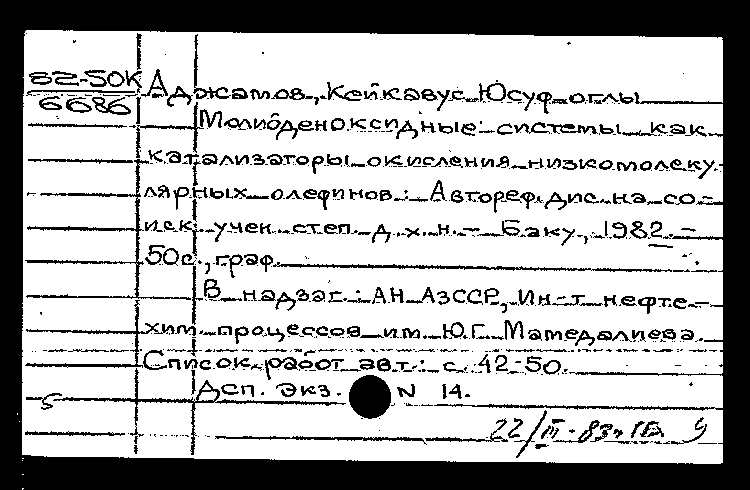 82-50К
6686
Аджамов, Кейкавус Юсуф оглы
Молибденоксидные системы как
катализаторы окисления низкомолеку-
лярных олефинов: Автореф. дис. на со-
иск. учен. степ. д. х. н. – Баку, 1982. –
50с., граф.
В надзаг.: АН АзССР, Ин-т нефте-
хим. процессов им. Ю.Г. Мамедалиева.
Список работ авт.: с. 42-50.
Дсп. Экз. N 14.
22/III-83г.